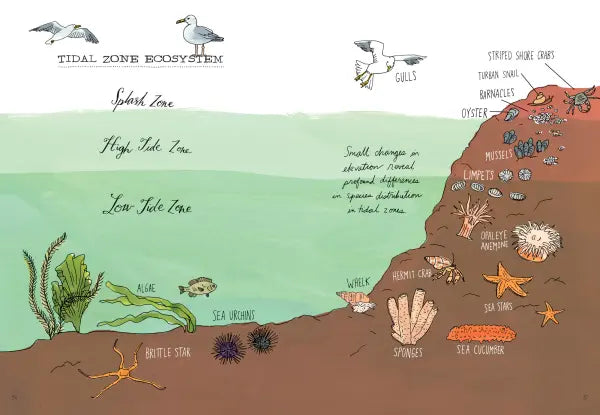 TIDAL ZONE ECOSYSTEM
Splash Zone
High Tide Zone
Low Tide Zone
GULLS
STRIPED SHORE CRABS
TURBAN SNAIL
BARNACLES
OYSTER
MUSSELS
LIMPETS
Small changes in
elevation reveal
profound differences
in species distribution
in tidal zones.
OPALEYE
ANEMONE
HERMIT CRAB
WHELK
SEA STARS
ALGAE
SEA URCHINS
BRITTLE STAR
SPONGES
SEA CUCUMBER